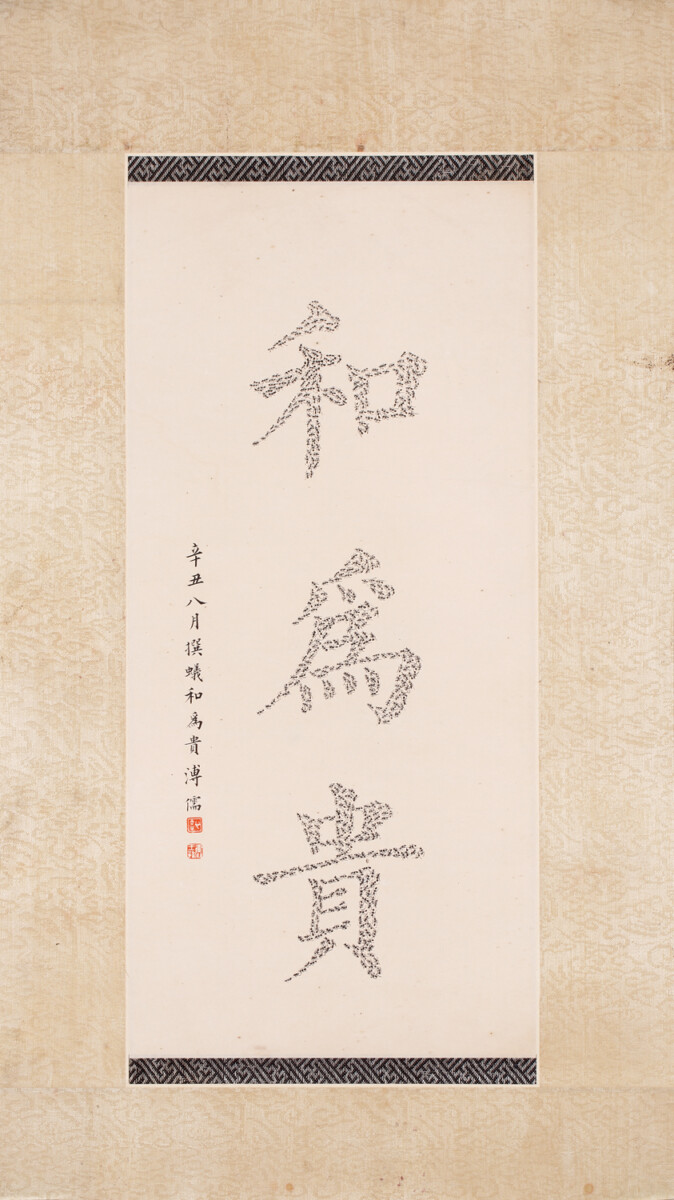 和為貴
辛丑八月撰蟻和為貴溥儒